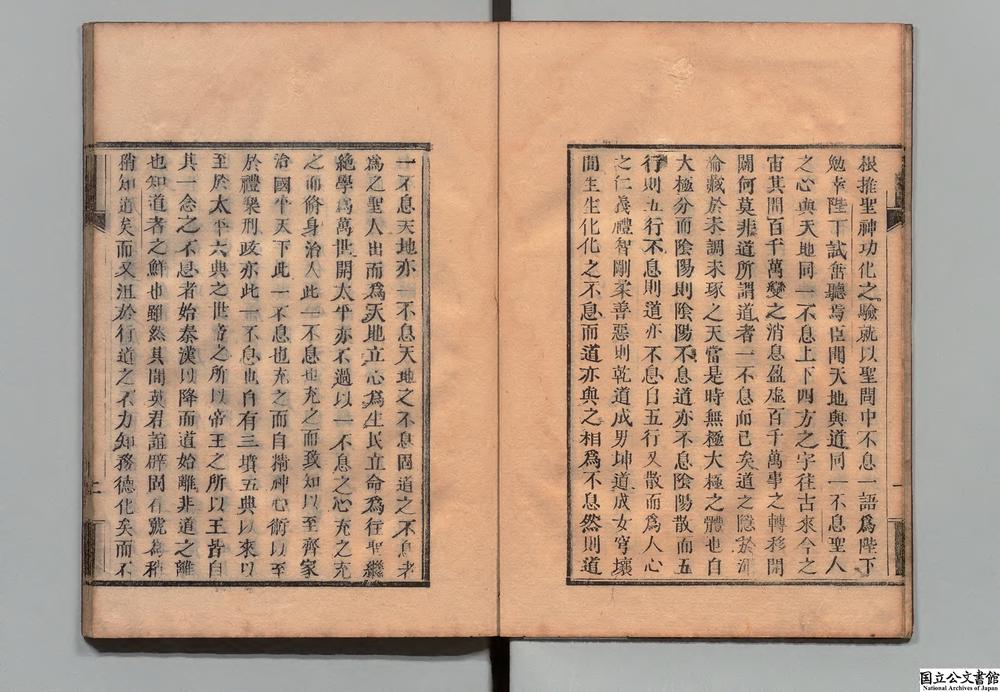 根推聖神功化之驗就以聖問中不息一語為陛下
勉幸陛下試垂聽焉臣聞天地與道同一不息聖人
之心與天地同一不息上下四方之宇往古來今之
宙其間百千萬變之消息盈虛百千萬事之轉移闔
闢何莫非道所謂道者一不息而已矣道之隱於渾
淪藏於未調未琢之天當是時無極太極之體也自
大極分而陰陽則陰陽不息道亦不息陰陽散而五
行則五行不息則道亦不息自五行又散而為人心
之仁義禮智剛柔善惡則乾道成男坤道成女穹壤
間生生化化之不息而道亦與之相為不息然則道
一不息天地亦一不息天地之不息固道之不息者
為之聖人出而為天地立心為生民立命為往聖繼
絕學為萬世開太平亦不過以一不息之心充之充
之而脩身治人此一不息也充之而致知以至齊家
治國平天下此一不息也充之而自精神心術以至
於禮樂刑政亦此一不息也自有三墳五典以來以
至於太平六典之世帝之所以帝王之所以王皆自
其一念之不息者始秦漢以降而道始離非道之離
也知道者之鮮也雖然其間英君誼辟固有號為稍
稍知道矣而又沮於行道之不力知務德化矣而不
一
二
国立公文書館
National Archives of Japan